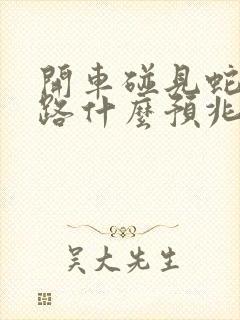 開車碰見蛇
路什麼預兆
吴大先生